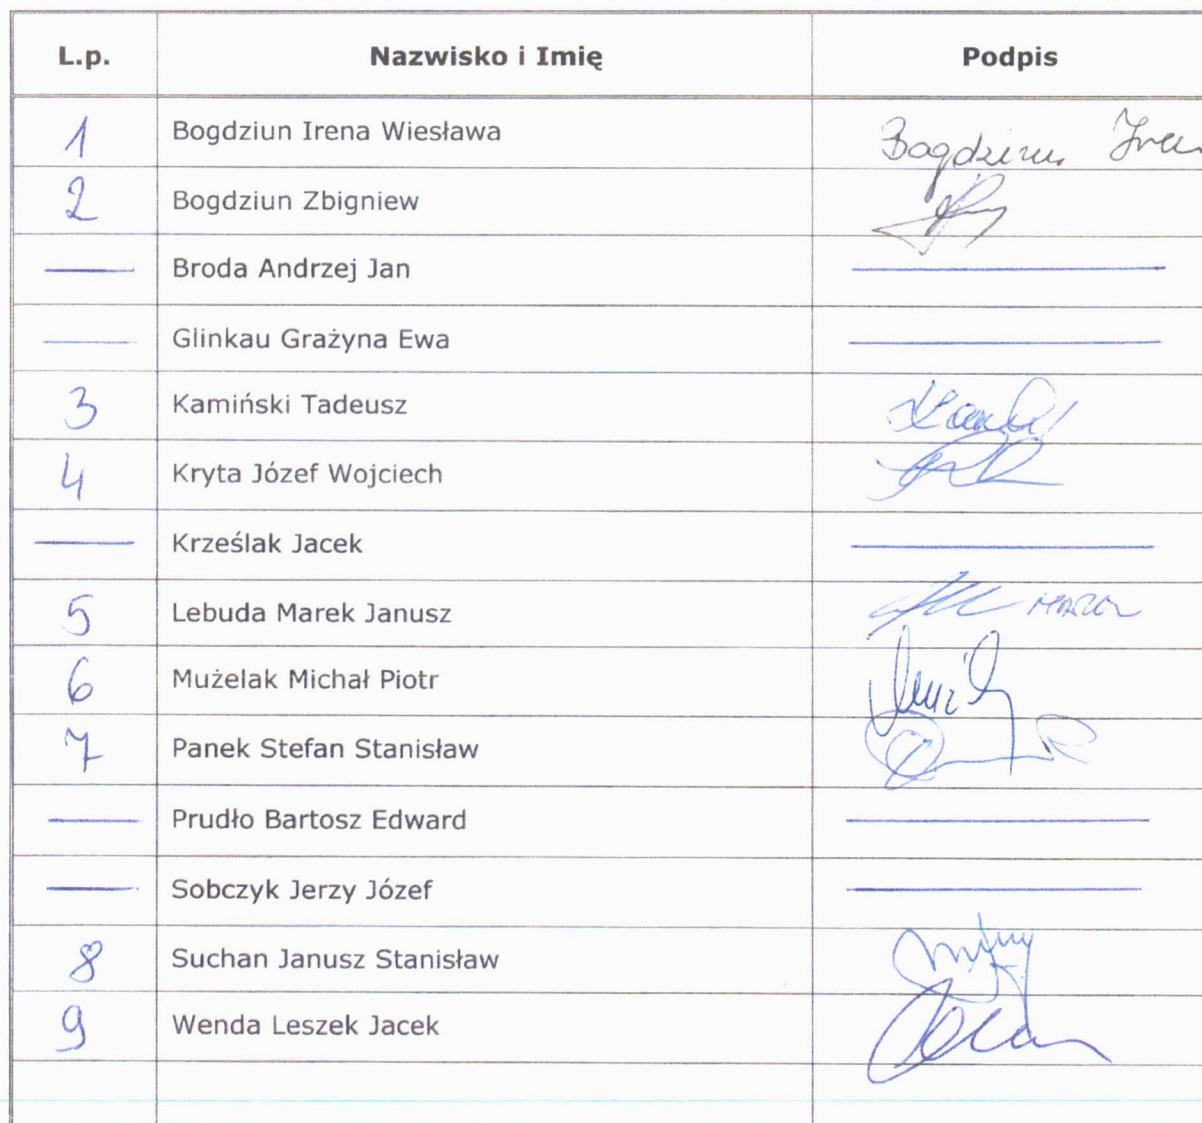 L.p. Nazwisko i Imię Podpis
1 Bogdziun Irena Wiesława Bogdziun
2 Bogdziun Zbigniew
Broda Andrzej Jan
Glinkau Grażyna Ewa
3 Kamiński Tadeusz
4 Kryta Józef Wojciech
Krześlak Jacek
5 Lebuda Marek Janusz
6 Mużelak Michał Piotr
7 Panek Stefan Stanisław
Prudło Bartosz Edward
Sobczyk Jerzy Józef
8 Suchan Janusz Stanisław
9 Wenda Leszek Jacek